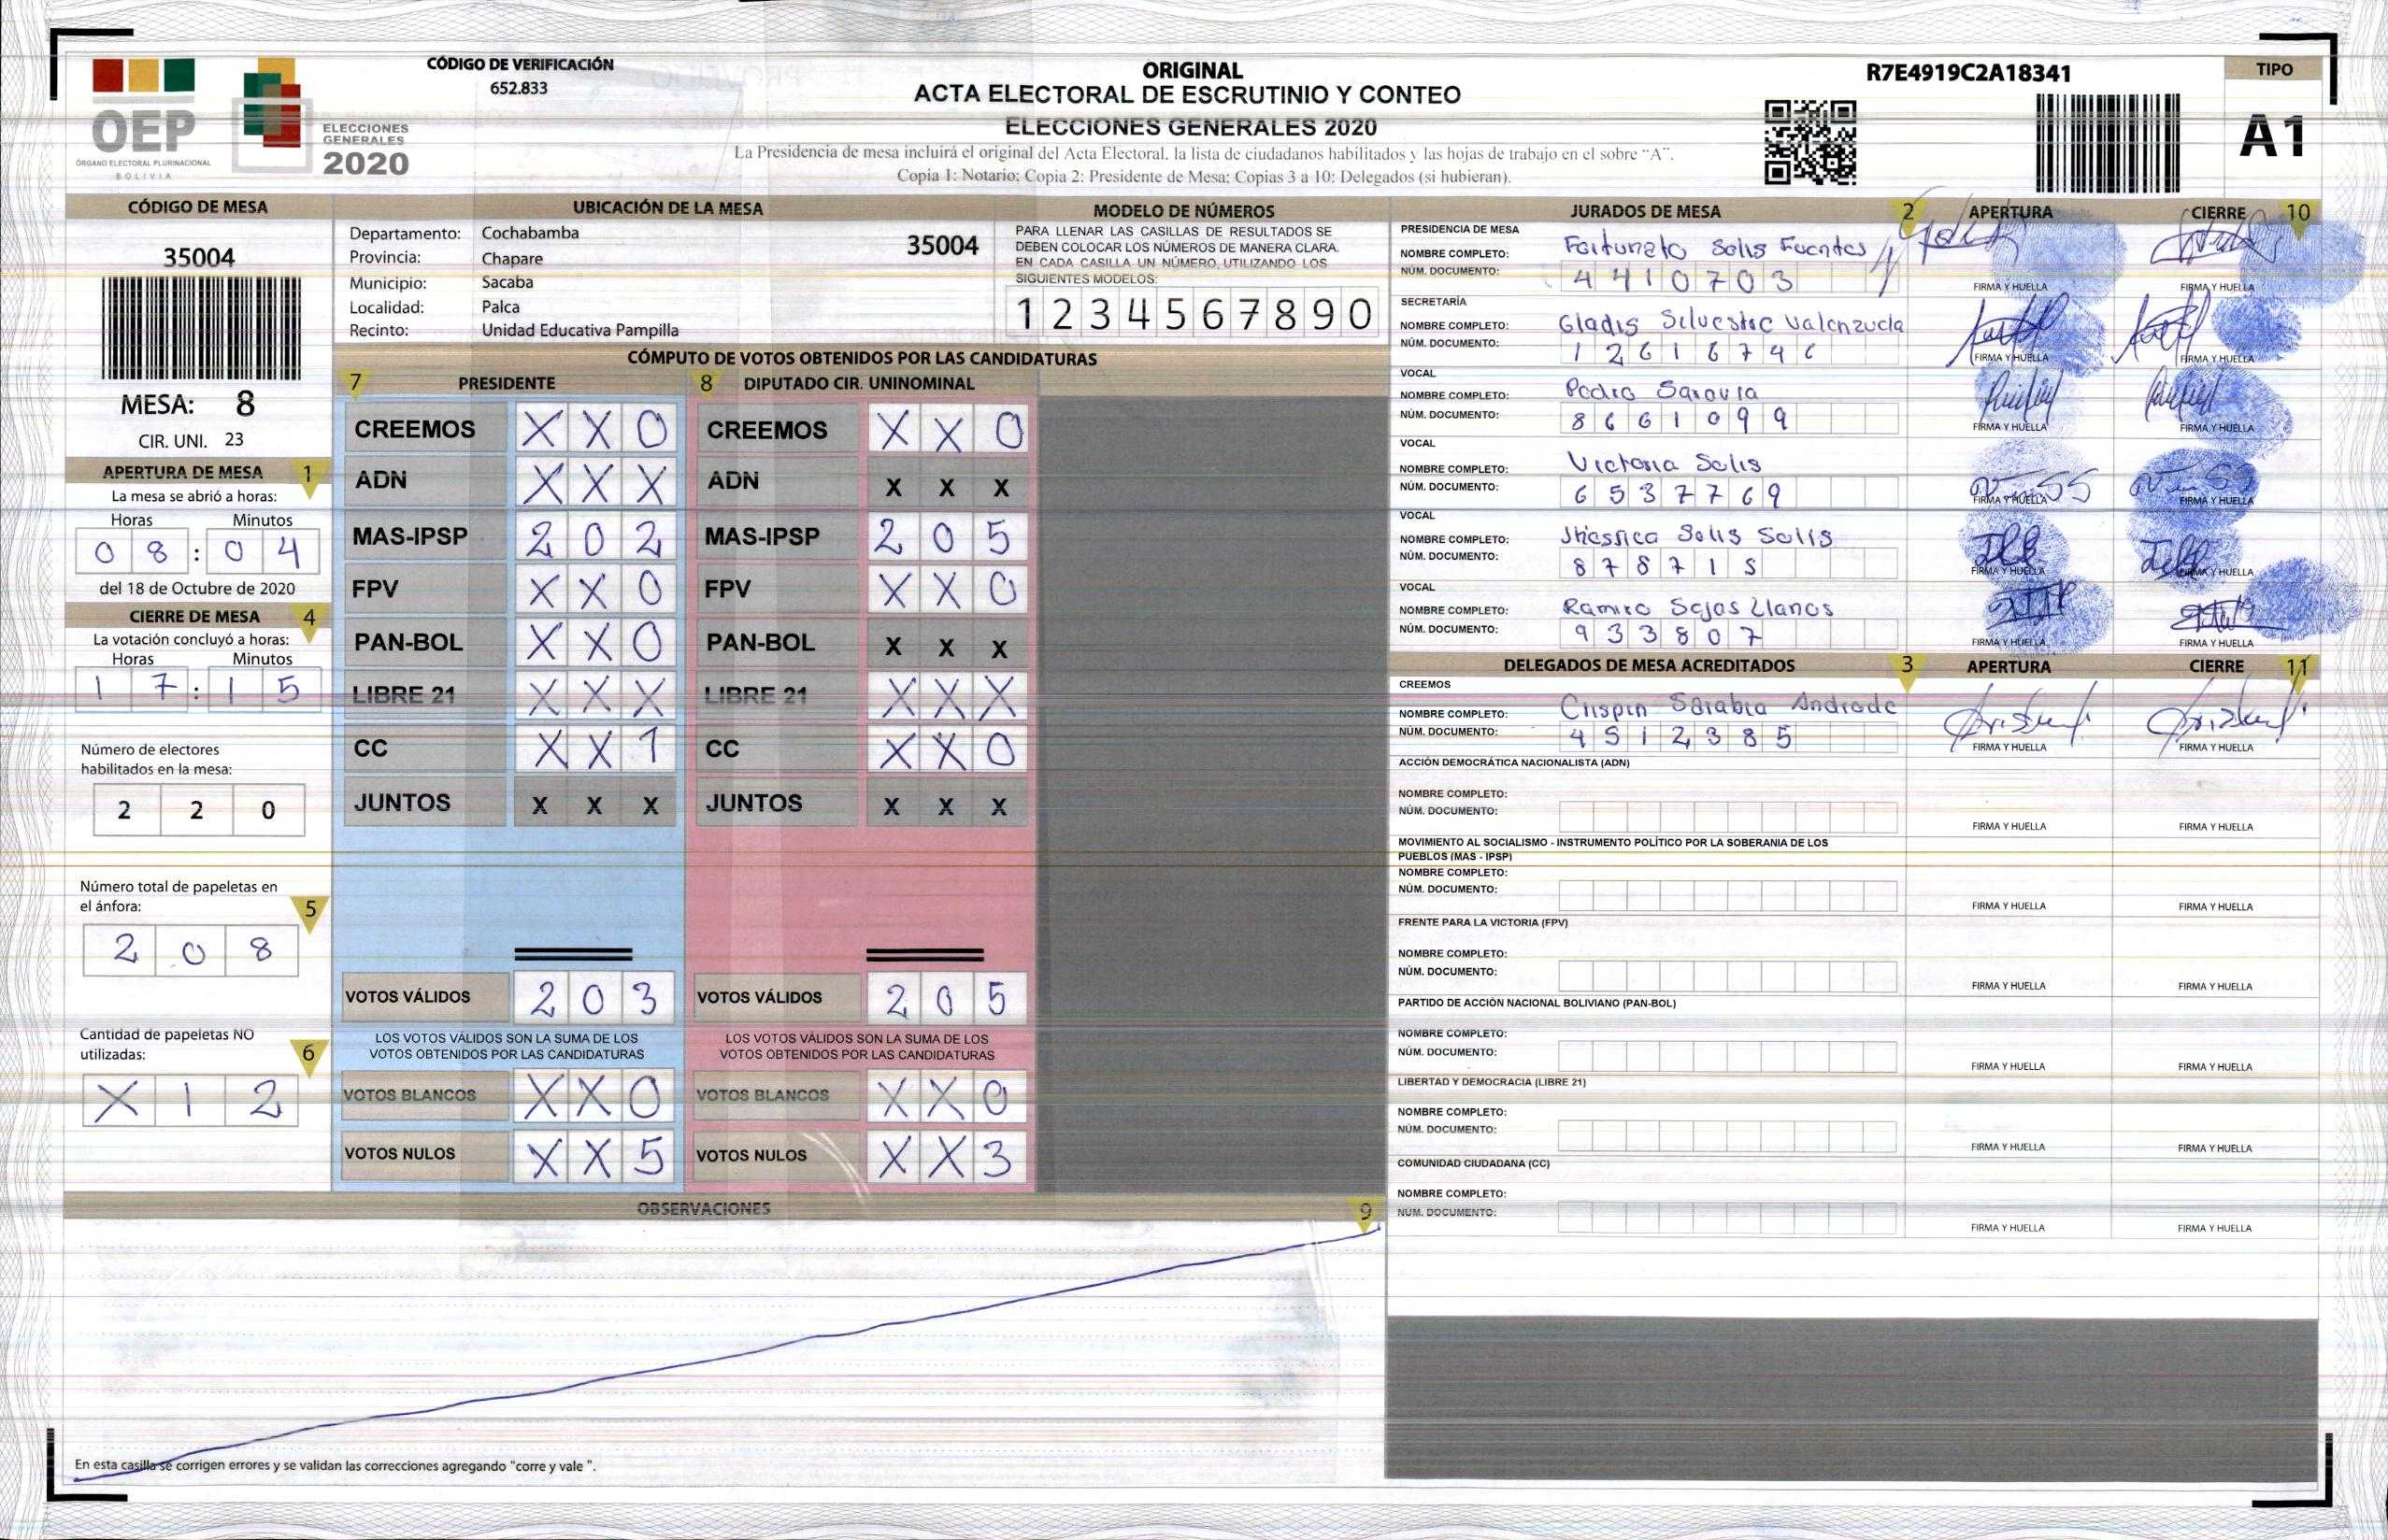 CÓDIGO DE VERIFICACIÓN
652.833
OEP
ÓRGANO ELECTORAL PLURINACIONAL
BOLIVIA
ELECCIONES
GENERALES
2020
ORIGINAL
ACTA ELECTORAL DE ESCRUTINIO Y CONTEO
ELECCIONES GENERALES 2020
La Presidencia de mesa incluirá el original del Acta Electoral, la lista de ciudadanos habilitados y las hojas de trabajo en el sobre "A".
Copia 1: Notario; Copia 2: Presidente de Mesa; Copias 3 a 10: Delegados (si hubieran).
R7E4919C2A18341
TIPO
A1
CÓDIGO DE MESA
35004
MESA: 8
CIR. UNI. 23
APERTURA DE MESA 1
La mesa se abrió a horas:
Horas Minutos
0 8 : 0 4
del 18 de Octubre de 2020
CIERRE DE MESA 4
La votación concluyó a horas:
Horas Minutos
1 7 : 1 5
Número de electores
habilitados en la mesa:
2 2 0
Número total de papeletas en
el ánfora: 5
2 0 8
Cantidad de papeletas NO
utilizadas: 6
X 1 2
UBICACIÓN DE LA MESA
Departamento: Cochabamba 35004
Provincia: Chapare
Municipio: Sacaba
Localidad: Palca
Recinto: Unidad Educativa Pampilla
MODELO DE NÚMEROS
PARA LLENAR LAS CASILLAS DE RESULTADOS SE
DEBEN COLOCAR LOS NÚMEROS DE MANERA CLARA.
EN CADA CASILLA UN NÚMERO, UTILIZANDO LOS
SIGUIENTES MODELOS:
1 2 3 4 5 6 7 8 9 0
CÓMPUTO DE VOTOS OBTENIDOS POR LAS CANDIDATURAS
7 PRESIDENTE 8 DIPUTADO CIR. UNINOMINAL
CREEMOS X X 0 CREEMOS X X 0
ADN X X X ADN X X X
MAS-IPSP 2 0 2 MAS-IPSP 2 0 5
FPV X X 0 FPV X X 0
PAN-BOL X X 0 PAN-BOL X X X
LIBRE 21 X X X LIBRE 21 X X X
CC X X 1 CC X X 0
JUNTOS X X X JUNTOS X X X
VOTOS VÁLIDOS 2 0 3 VOTOS VÁLIDOS 2 0 5
LOS VOTOS VÁLIDOS SON LA SUMA DE LOS LOS VOTOS VÁLIDOS SON LA SUMA DE LOS
VOTOS OBTENIDOS POR LAS CANDIDATURAS VOTOS OBTENIDOS POR LAS CANDIDATURAS
VOTOS BLANCOS X X 0 VOTOS BLANCOS X X 0
VOTOS NULOS X X 5 VOTOS NULOS X X 3
OBSERVACIONES 9
En esta casilla se corrigen errores y se validan las correcciones agregando "corre y vale ".
JURADOS DE MESA 2 APERTURA CIERRE 10
PRESIDENCIA DE MESA
NOMBRE COMPLETO: Fortunato Solis Fuentes
NÚM. DOCUMENTO: 4 4 1 0 7 0 3
FIRMA Y HUELLA FIRMA Y HUELLA
SECRETARÍA
NOMBRE COMPLETO: Gladis Silvestre Valenzuela
NÚM. DOCUMENTO: 1 2 6 1 6 7 4 6
FIRMA Y HUELLA FIRMA Y HUELLA
VOCAL
NOMBRE COMPLETO: Pedro Saravia
NÚM. DOCUMENTO: 8 6 6 1 0 9 9
FIRMA Y HUELLA FIRMA Y HUELLA
VOCAL
NOMBRE COMPLETO: Victoria Solis
NÚM. DOCUMENTO: 6 5 3 7 7 6 9
FIRMA Y HUELLA FIRMA Y HUELLA
VOCAL
NOMBRE COMPLETO: Jhessica Solis Solis
NÚM. DOCUMENTO: 8 7 8 7 1 5
FIRMA Y HUELLA FIRMA Y HUELLA
VOCAL
NOMBRE COMPLETO: Ramiro Sejas Llanos
NÚM. DOCUMENTO: 9 3 3 8 0 7
FIRMA Y HUELLA FIRMA Y HUELLA
DELEGADOS DE MESA ACREDITADOS 3 APERTURA CIERRE 11
CREEMOS
NOMBRE COMPLETO: Crispin Sarabia Andrade
NÚM. DOCUMENTO: 4 5 1 2 3 8 5
FIRMA Y HUELLA FIRMA Y HUELLA
ACCIÓN DEMOCRÁTICA NACIONALISTA (ADN)
NOMBRE COMPLETO:
NÚM. DOCUMENTO:
FIRMA Y HUELLA FIRMA Y HUELLA
MOVIMIENTO AL SOCIALISMO - INSTRUMENTO POLÍTICO POR LA SOBERANIA DE LOS
PUEBLOS (MAS - IPSP)
NOMBRE COMPLETO:
NÚM. DOCUMENTO:
FIRMA Y HUELLA FIRMA Y HUELLA
FRENTE PARA LA VICTORIA (FPV)
NOMBRE COMPLETO:
NÚM. DOCUMENTO:
FIRMA Y HUELLA FIRMA Y HUELLA
PARTIDO DE ACCIÓN NACIONAL BOLIVIANO (PAN-BOL)
NOMBRE COMPLETO:
NÚM. DOCUMENTO:
FIRMA Y HUELLA FIRMA Y HUELLA
LIBERTAD Y DEMOCRACIA (LIBRE 21)
NOMBRE COMPLETO:
NÚM. DOCUMENTO:
FIRMA Y HUELLA FIRMA Y HUELLA
COMUNIDAD CIUDADANA (CC)
NOMBRE COMPLETO:
NÚM. DOCUMENTO:
FIRMA Y HUELLA FIRMA Y HUELLA